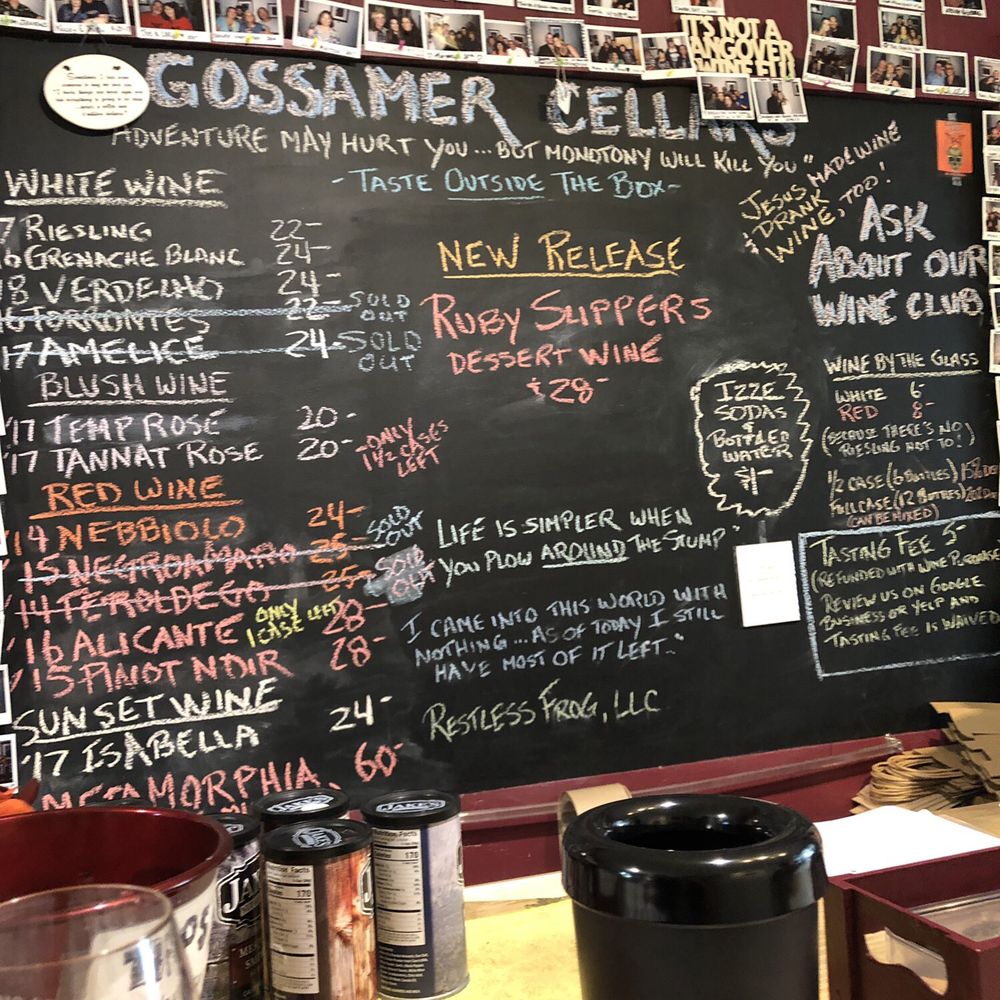 IT'S NOT A
HANGOVER
WINE FLU
GOSSAMER CELLARS
ADVENTURE MAY HURT YOU... BUT MONOTONY WILL KILL YOU"
-TASTE OUTSIDE THE BOX-
WHITE WINE
7 RIESLING 22-
6 GRENACHE BLANC 24-
18 VERDELHO 24-
16 TORRONTES 22- SOLD OUT
17 AMELICE 24- SOLD OUT
BLUSH WINE
'17 TEMP ROSE 20-
'17 TANNAT ROSE 20- -ONLY 1 1/2 CASES LEFT
RED WINE
'14 NEBBIOLO 24-
'15 NEGROAMARO 25- SOLD OUT
'14 TEROLDEGO 25- SOLD OUT
'16 ALICANTE ONLY 1 CASE LEFT 28-
'15 PINOT NOIR 28-
SUNSET WINE
'17 ISABELLA 24-
METAMORPHIA 60-
NEW RELEASE
RUBY SLIPPERS
DESSERT WINE
$28-
LIFE IS SIMPLER WHEN
YOU PLOW AROUND THE STUMP"
I CAME INTO THIS WORLD WITH
NOTHING... AS OF TODAY I STILL
HAVE MOST OF IT LEFT."
RESTLESS FROG, LLC
JESUS MADE WINE
& DRANK
WINE, TOO!
ASK
ABOUT OUR
WINE CLUB
IZZE
SODAS
&
BOTTLED
WATER
$1-
WINE BY THE GLASS
WHITE 6-
RED 8-
(BECAUSE THERE'S NO
RIESLING NOT TO!)
1/2 CASE (6 BOTTLES) 15%
FULL CASE (12 BOTTLES) 20%
(CAN BE MIXED)
TASTING FEE 5-
(REFUNDED WITH WINE PURCHASE
REVIEW US ON GOOGLE
BUSINESS OR YELP AND
TASTING FEE IS WAIVED
JAKE'S
Nutrition Facts
170
Nutrition Facts
170